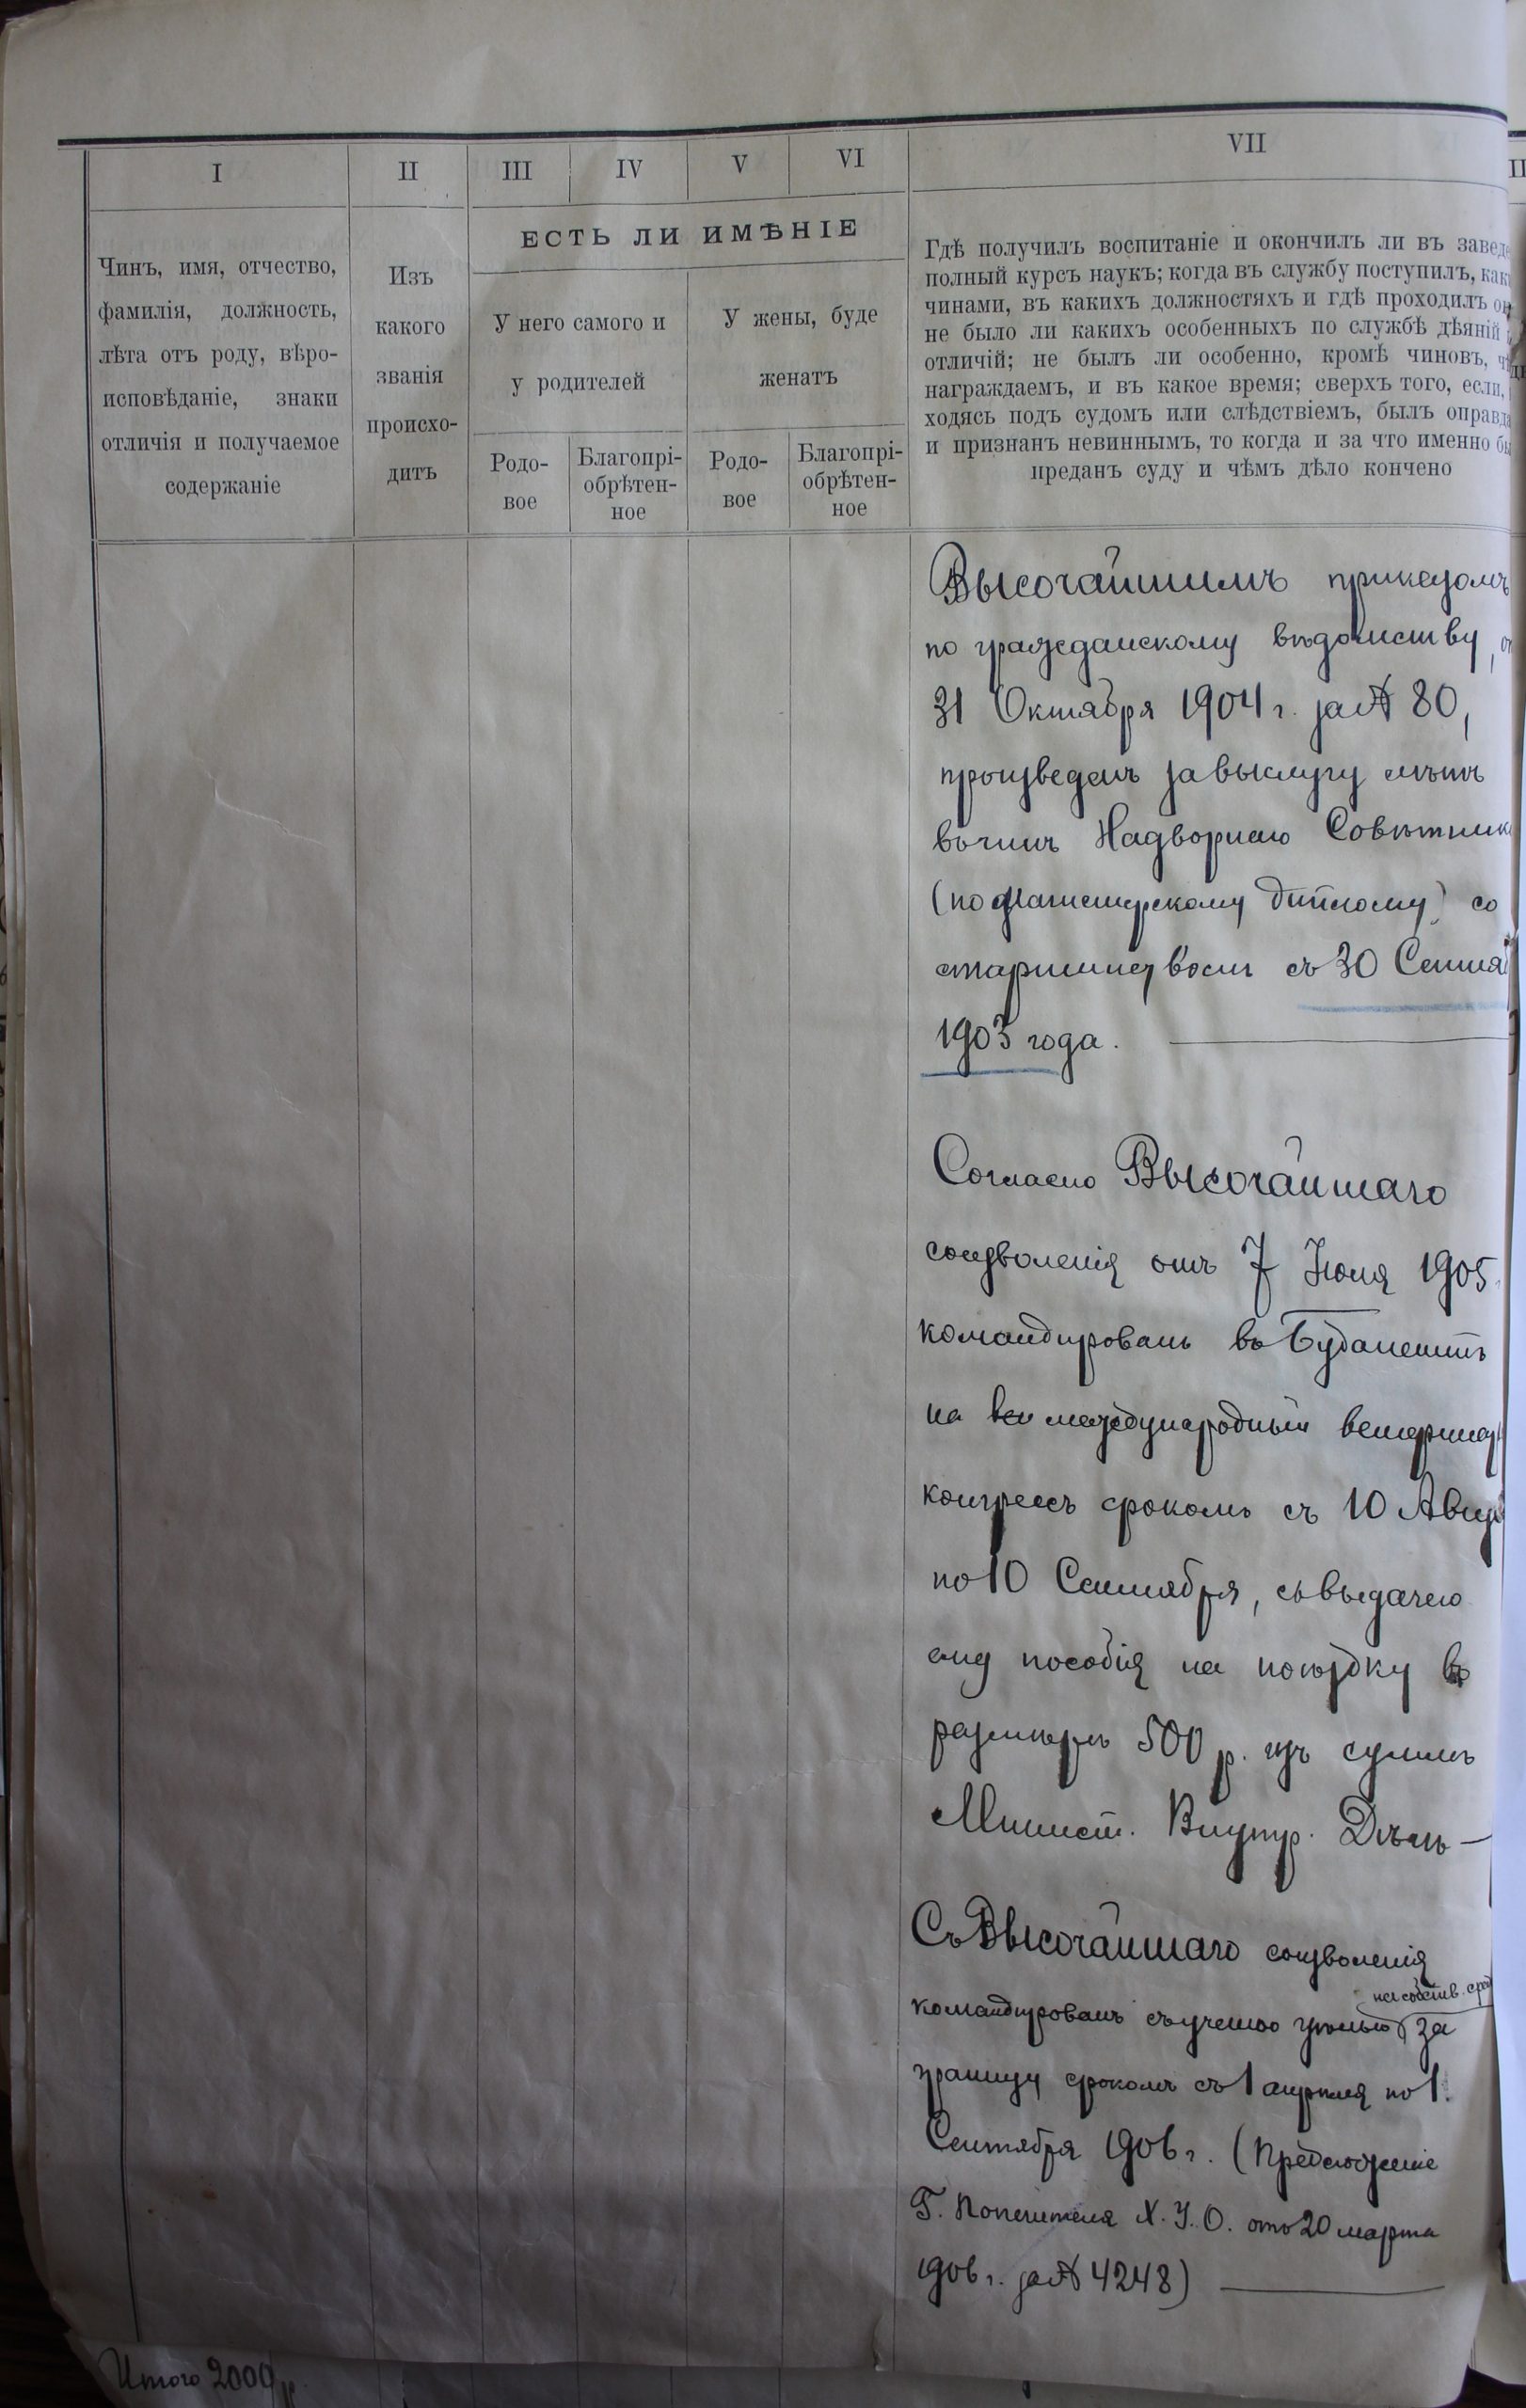 I II III IV V VI VII
Чинъ, имя, отчество,
фамилія, должность,
лѣта отъ роду, вѣро-
исповѣданіе, знаки
отличія и получаемое
содержаніе
Изъ
какого
званія
происхо-
дитъ
ЕСТЬ ЛИ ИМѢНІЕ
У него самого и
у родителей
У жены, буде
женатъ
Родо-
вое
Благопрі-
обрѣтен-
ное
Родо-
вое
Благопрі-
обрѣтен-
ное
Гдѣ получилъ воспитаніе и окончилъ ли въ завед
полный курсъ наукъ; когда въ службу поступилъ, как
чинами, въ какихъ должностяхъ и гдѣ проходилъ
не было ли какихъ особенныхъ по службѣ дѣяній
отличій; не былъ ли особенно, кромѣ чиновъ,
награждаемъ, и въ какое время; сверхъ того, если,
ходясь подъ судомъ или слѣдствіемъ, былъ оправд
и признанъ невиннымъ, то когда и за что именно
преданъ суду и чѣмъ дѣло кончено
Высочайшимъ приказомъ
по гражданскому вѣдомству,
31 Октября 1904 г. за № 80,
произведенъ за выслугу лѣтъ
въ чинъ Надворнаго Совѣтник
(по магистерскому диплому) со
старшинствомъ съ 30 Сентя
1903 года.
Согласно Высочайшаго
соизволенія отъ 7 Іюня 1905
командированъ въ Будапештъ
на международный ветерина
конгрессъ срокомъ съ 10 Авгу
по 10 Сентября, съ выдачею
ему пособія на поѣздку въ
размѣрѣ 500 р. изъ суммъ
Минист. Внутр. Дѣлъ –
Съ Высочайшаго соизволенія
на собств. сред
командированъ съ ученою цѣлью за
границу срокомъ съ 1 апрѣля по 1.
Сентября 1906 г. (Предложеніе
Г. Попечителя Х. У. О. отъ 20 марта
1906 г. за № 4248)
Итого 2000 р.